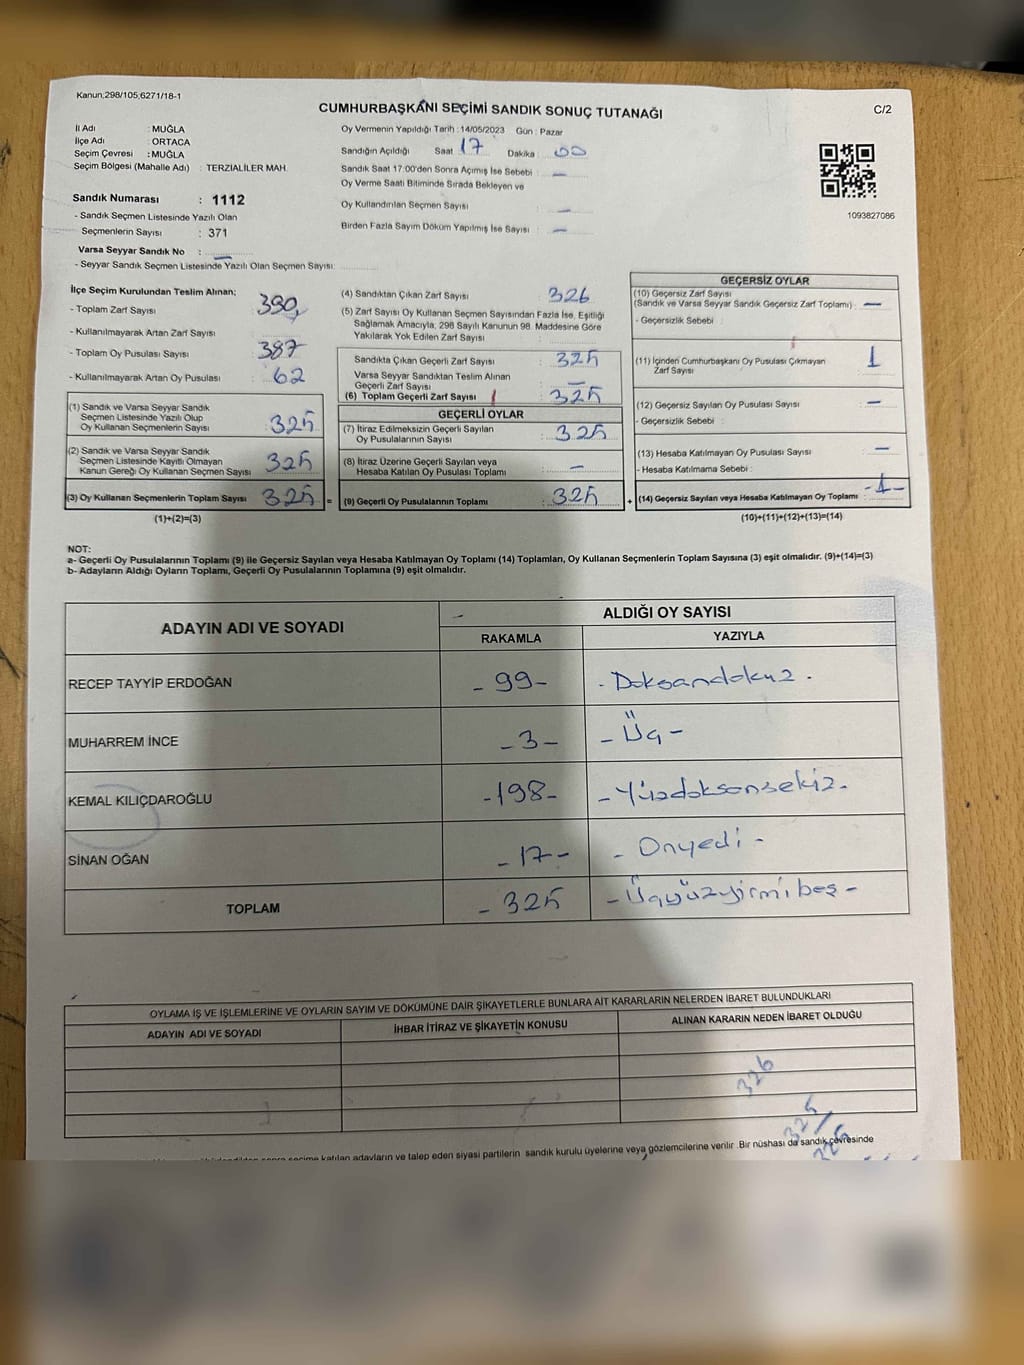 Kanun;298/105;6271/18-1
CUMHURBAŞKANI SEÇİMİ SANDIK SONUÇ TUTANAĞI
C/2
İl Adı : MUĞLA
İlçe Adı : ORTACA
Seçim Çevresi : MUĞLA
Seçim Bölgesi (Mahalle Adı) : TERZİALİLER MAH.
Oy Vermenin Yapıldığı Tarih : 14/05/2023 Gün : Pazar
Sandığın Açıldığı Saat 17 Dakika : 00
Sandık Saat 17:00'den Sonra Açılmış İse Sebebi : —
Oy Verme Saati Bitiminde Sırada Bekleyen ve
Oy Kullandırılan Seçmen Sayısı : —
Birden Fazla Sayım Döküm Yapılmış İse Sayısı : —
1093827086
Sandık Numarası : 1112
- Sandık Seçmen Listesinde Yazılı Olan
Seçmenlerin Sayısı : 371
Varsa Seyyar Sandık No : —
- Seyyar Sandık Seçmen Listesinde Yazılı Olan Seçmen Sayısı:
İlçe Seçim Kurulundan Teslim Alınan;
- Toplam Zarf Sayısı : 390
- Kullanılmayarak Artan Zarf Sayısı :
- Toplam Oy Pusulası Sayısı : 387
- Kullanılmayarak Artan Oy Pusulası : 62
(1) Sandık ve Varsa Seyyar Sandık
Seçmen Listesinde Yazılı Olup
Oy Kullanan Seçmenlerin Sayısı : 325
(2) Sandık ve Varsa Seyyar Sandık
Seçmen Listesinde Kayıtlı Olmayan
Kanun Gereği Oy Kullanan Seçmen Sayısı : 325
(3) Oy Kullanan Seçmenlerin Toplam Sayısı : 325 =
(1)+(2)=(3)
(4) Sandıktan Çıkan Zarf Sayısı : 326
(5) Zarf Sayısı Oy Kullanan Seçmen Sayısından Fazla İse, Eşitliği
Sağlamak Amacıyla, 298 Sayılı Kanunun 98. Maddesine Göre
Yakılarak Yok Edilen Zarf Sayısı :
Sandıkta Çıkan Geçerli Zarf Sayısı : 325
Varsa Seyyar Sandıktan Teslim Alınan
Geçerli Zarf Sayısı : —
(6) Toplam Geçerli Zarf Sayısı : 325
GEÇERLİ OYLAR
(7) İtiraz Edilmeksizin Geçerli Sayılan
Oy Pusulalarının Sayısı : 325
(8) İtiraz Üzerine Geçerli Sayılan veya
Hesaba Katılan Oy Pusulası Toplamı : —
(9) Geçerli Oy Pusulalarının Toplamı : 325 +
GEÇERSİZ OYLAR
(10) Geçersiz Zarf Sayısı
(Sandık ve Varsa Seyyar Sandık Geçersiz Zarf Toplamı) : —
- Geçersizlik Sebebi :
(11) İçinden Cumhurbaşkanı Oy Pusulası Çıkmayan
Zarf Sayısı : 1
(12) Geçersiz Sayılan Oy Pusulası Sayısı : —
- Geçersizlik Sebebi :
(13) Hesaba Katılmayan Oy Pusulası Sayısı : —
- Hesaba Katılmama Sebebi :
(14) Geçersiz Sayılan veya Hesaba Katılmayan Oy Toplamı : -1-
(10)+(11)+(12)+(13)=(14)
NOT:
a- Geçerli Oy Pusulalarının Toplamı (9) ile Geçersiz Sayılan veya Hesaba Katılmayan Oy Toplamı (14) Toplamları, Oy Kullanan Seçmenlerin Toplam Sayısına (3) eşit olmalıdır. (9)+(14)=(3)
b- Adayların Aldığı Oyların Toplamı, Geçerli Oy Pusulalarının Toplamına (9) eşit olmalıdır.
ADAYIN ADI VE SOYADI
ALDIĞI OY SAYISI
RAKAMLA YAZIYLA
RECEP TAYYİP ERDOĞAN - 99 - - Doksandokuz -
MUHARREM İNCE - 3 - - Üç -
KEMAL KILIÇDAROĞLU - 198 - - Yüzdoksansekiz -
SİNAN OĞAN - 17 - - Onyedi -
TOPLAM - 325 - Üçyüzyirmibeş -
OYLAMA İŞ VE İŞLEMLERİNE VE OYLARIN SAYIM VE DÖKÜMÜNE DAİR ŞİKAYETLERLE BUNLARA AİT KARARLARIN NELERDEN İBARET BULUNDUKLARI
ADAYIN ADI VE SOYADI İHBAR İTİRAZ VE ŞİKAYETİN KONUSU ALINAN KARARIN NEDEN İBARET OLDUĞU
326
325
326
seçime katılan adayların ve talep eden siyasi partilerin sandık kurulu üyelerine veya gözlemcilerine verilir. Bir nüshası da sandık çevresinde